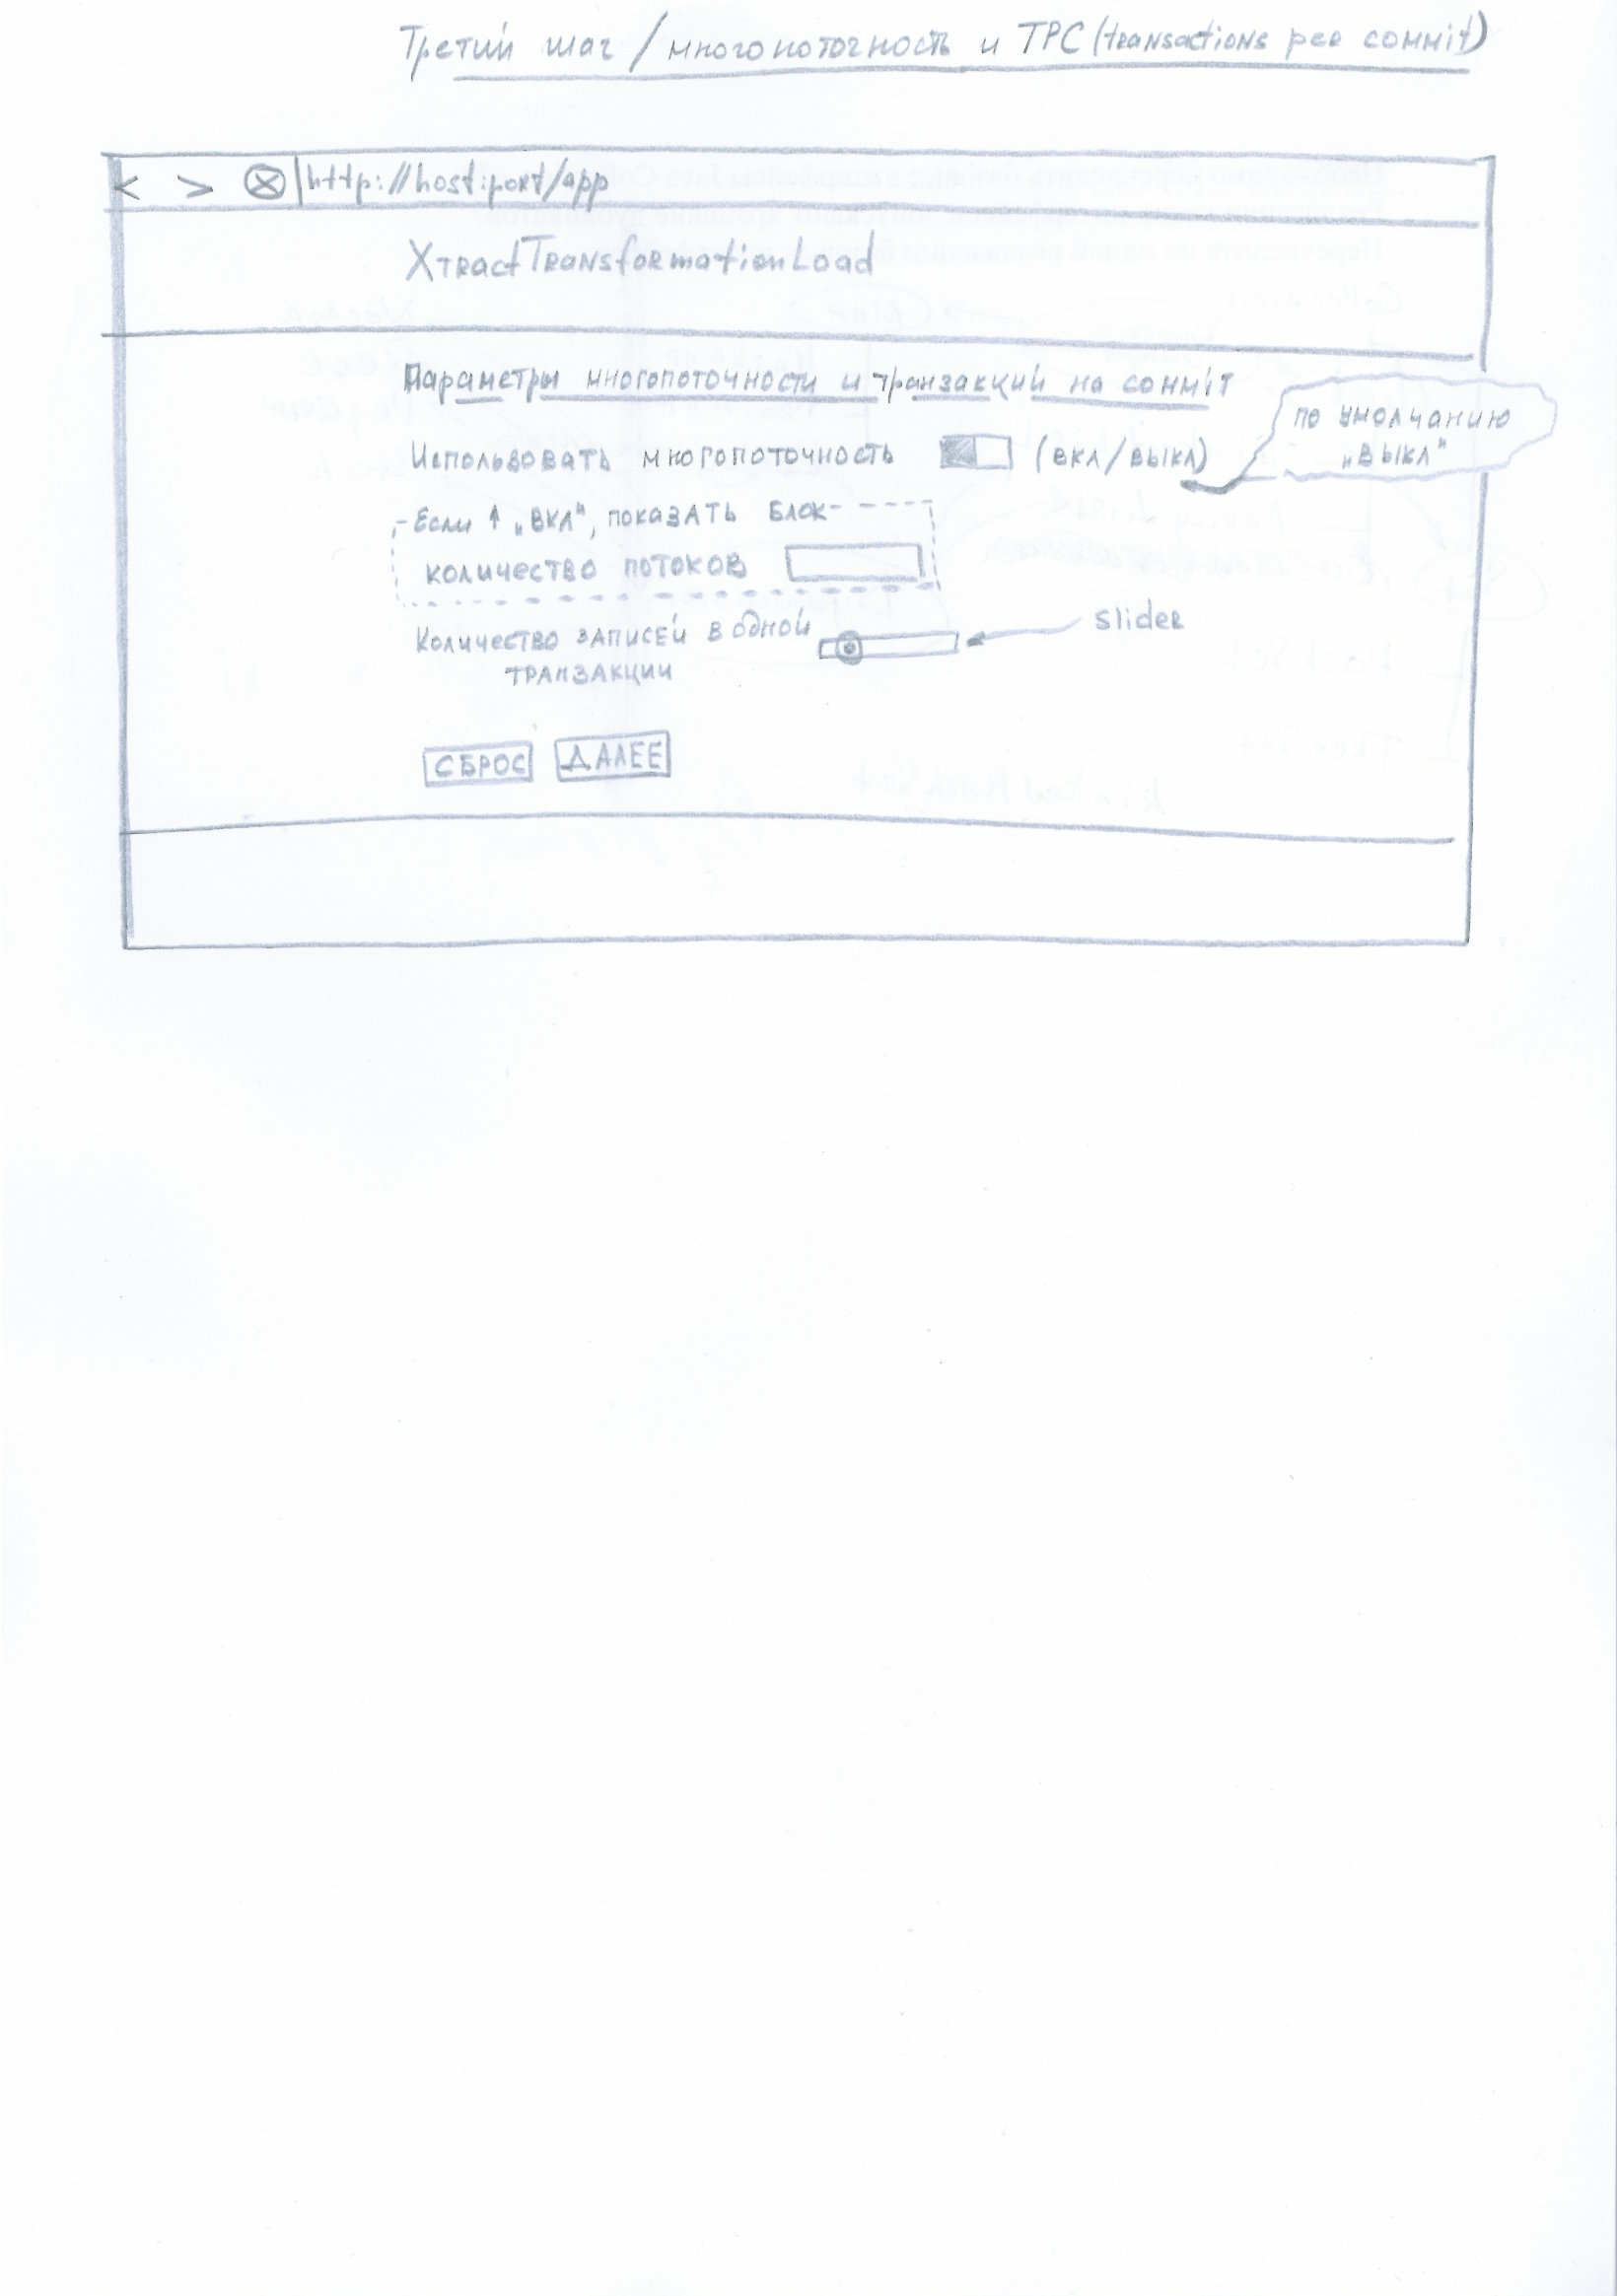 Третий шаг / многопоточность и TPC (transactions per commit)
< > ⊗ http://host:port/app
XtractTransformationLoad
Параметры многопоточности и транзакций на commit
Использовать многопоточность (вкл/выкл)
по умолчанию
„выкл"
Если ↑ „вкл", показать блок
количество потоков
Количество записей в одной
транзакции
slider
СБРОС ДАЛЕЕ